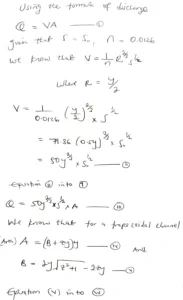 Using the formula of discharge
Q = VA —— ①
given that S = S₀, n = 0.0126
We know that V = 1/n R^2/3 S^1/2
where R = y/2
V = 1/0.0126 (y/2)^2/3 × S^1/2
= 79.36 (0.5y)^2/3 × S₀^1/2
= 50y^2/3 S₀^1/2 ——
equation into ①
Q = 50y^2/3 × S₀^1/2 × A ——
We know that for a trapezoidal channel
Area) A = (B + zy)y —— (iv)
and
B = 2y√z²+1 - 2zy —— (v)
Equation (v) into